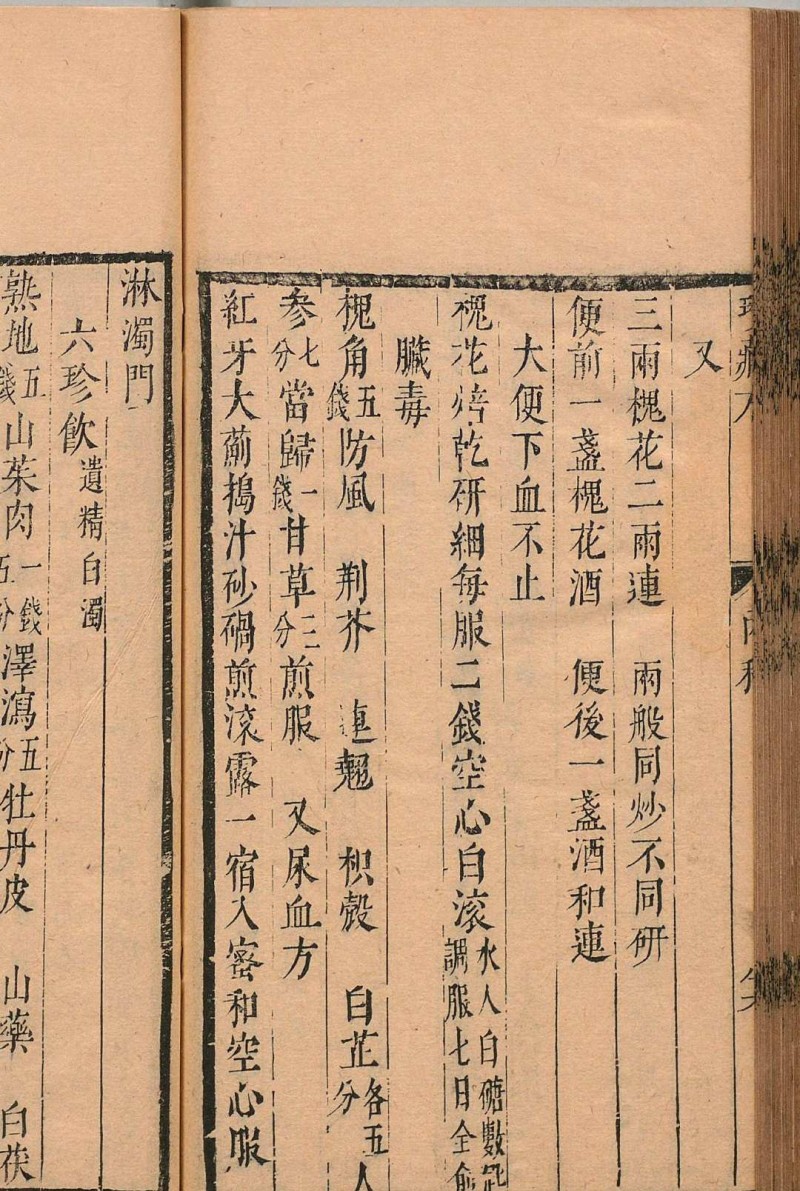 又
三兩槐花二兩連　兩般同炒不同研
便前一盞槐花酒　便後一盞酒和連
大便下血不止
槐花焙乾研細每服二錢空心白滾水入白礶數匙調服七日全愈
臟毒
槐角五錢防風　荆芥　連翹　枳殼　白芷各五分人
參七分當歸一錢甘草三分煎服　又尿血方
紅牙大薊搗汁砂鍋煎滾露一宿入蜜和空心服
淋濁門
六珍飲遺精白濁
熟地五錢山茱肉一錢五分澤瀉五分牡丹皮　山藥　白茯